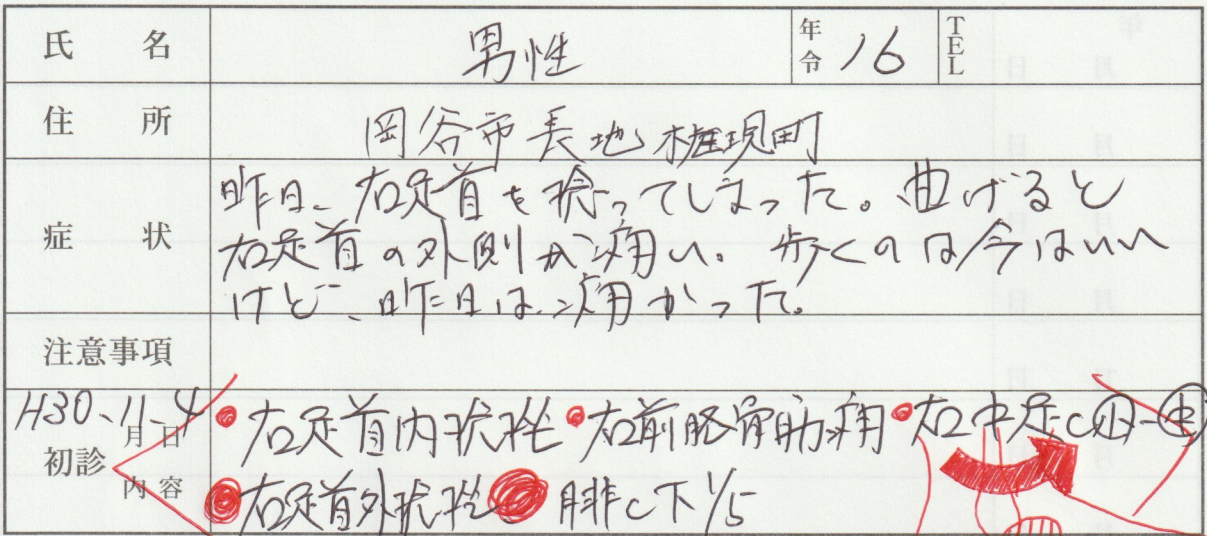 氏名 男性 年令 16 TEL
住所 岡谷市長地権現町
症状 昨日、右足首を捻ってしまった。曲げると
右足首の外側が痛い。歩くのは今はいい
けど、昨日は痛かった。
注意事項
H30.11.4 月日 右足首内 右前脛骨筋痛 右中足C
初診 内容 右足首外 腓C下1/5